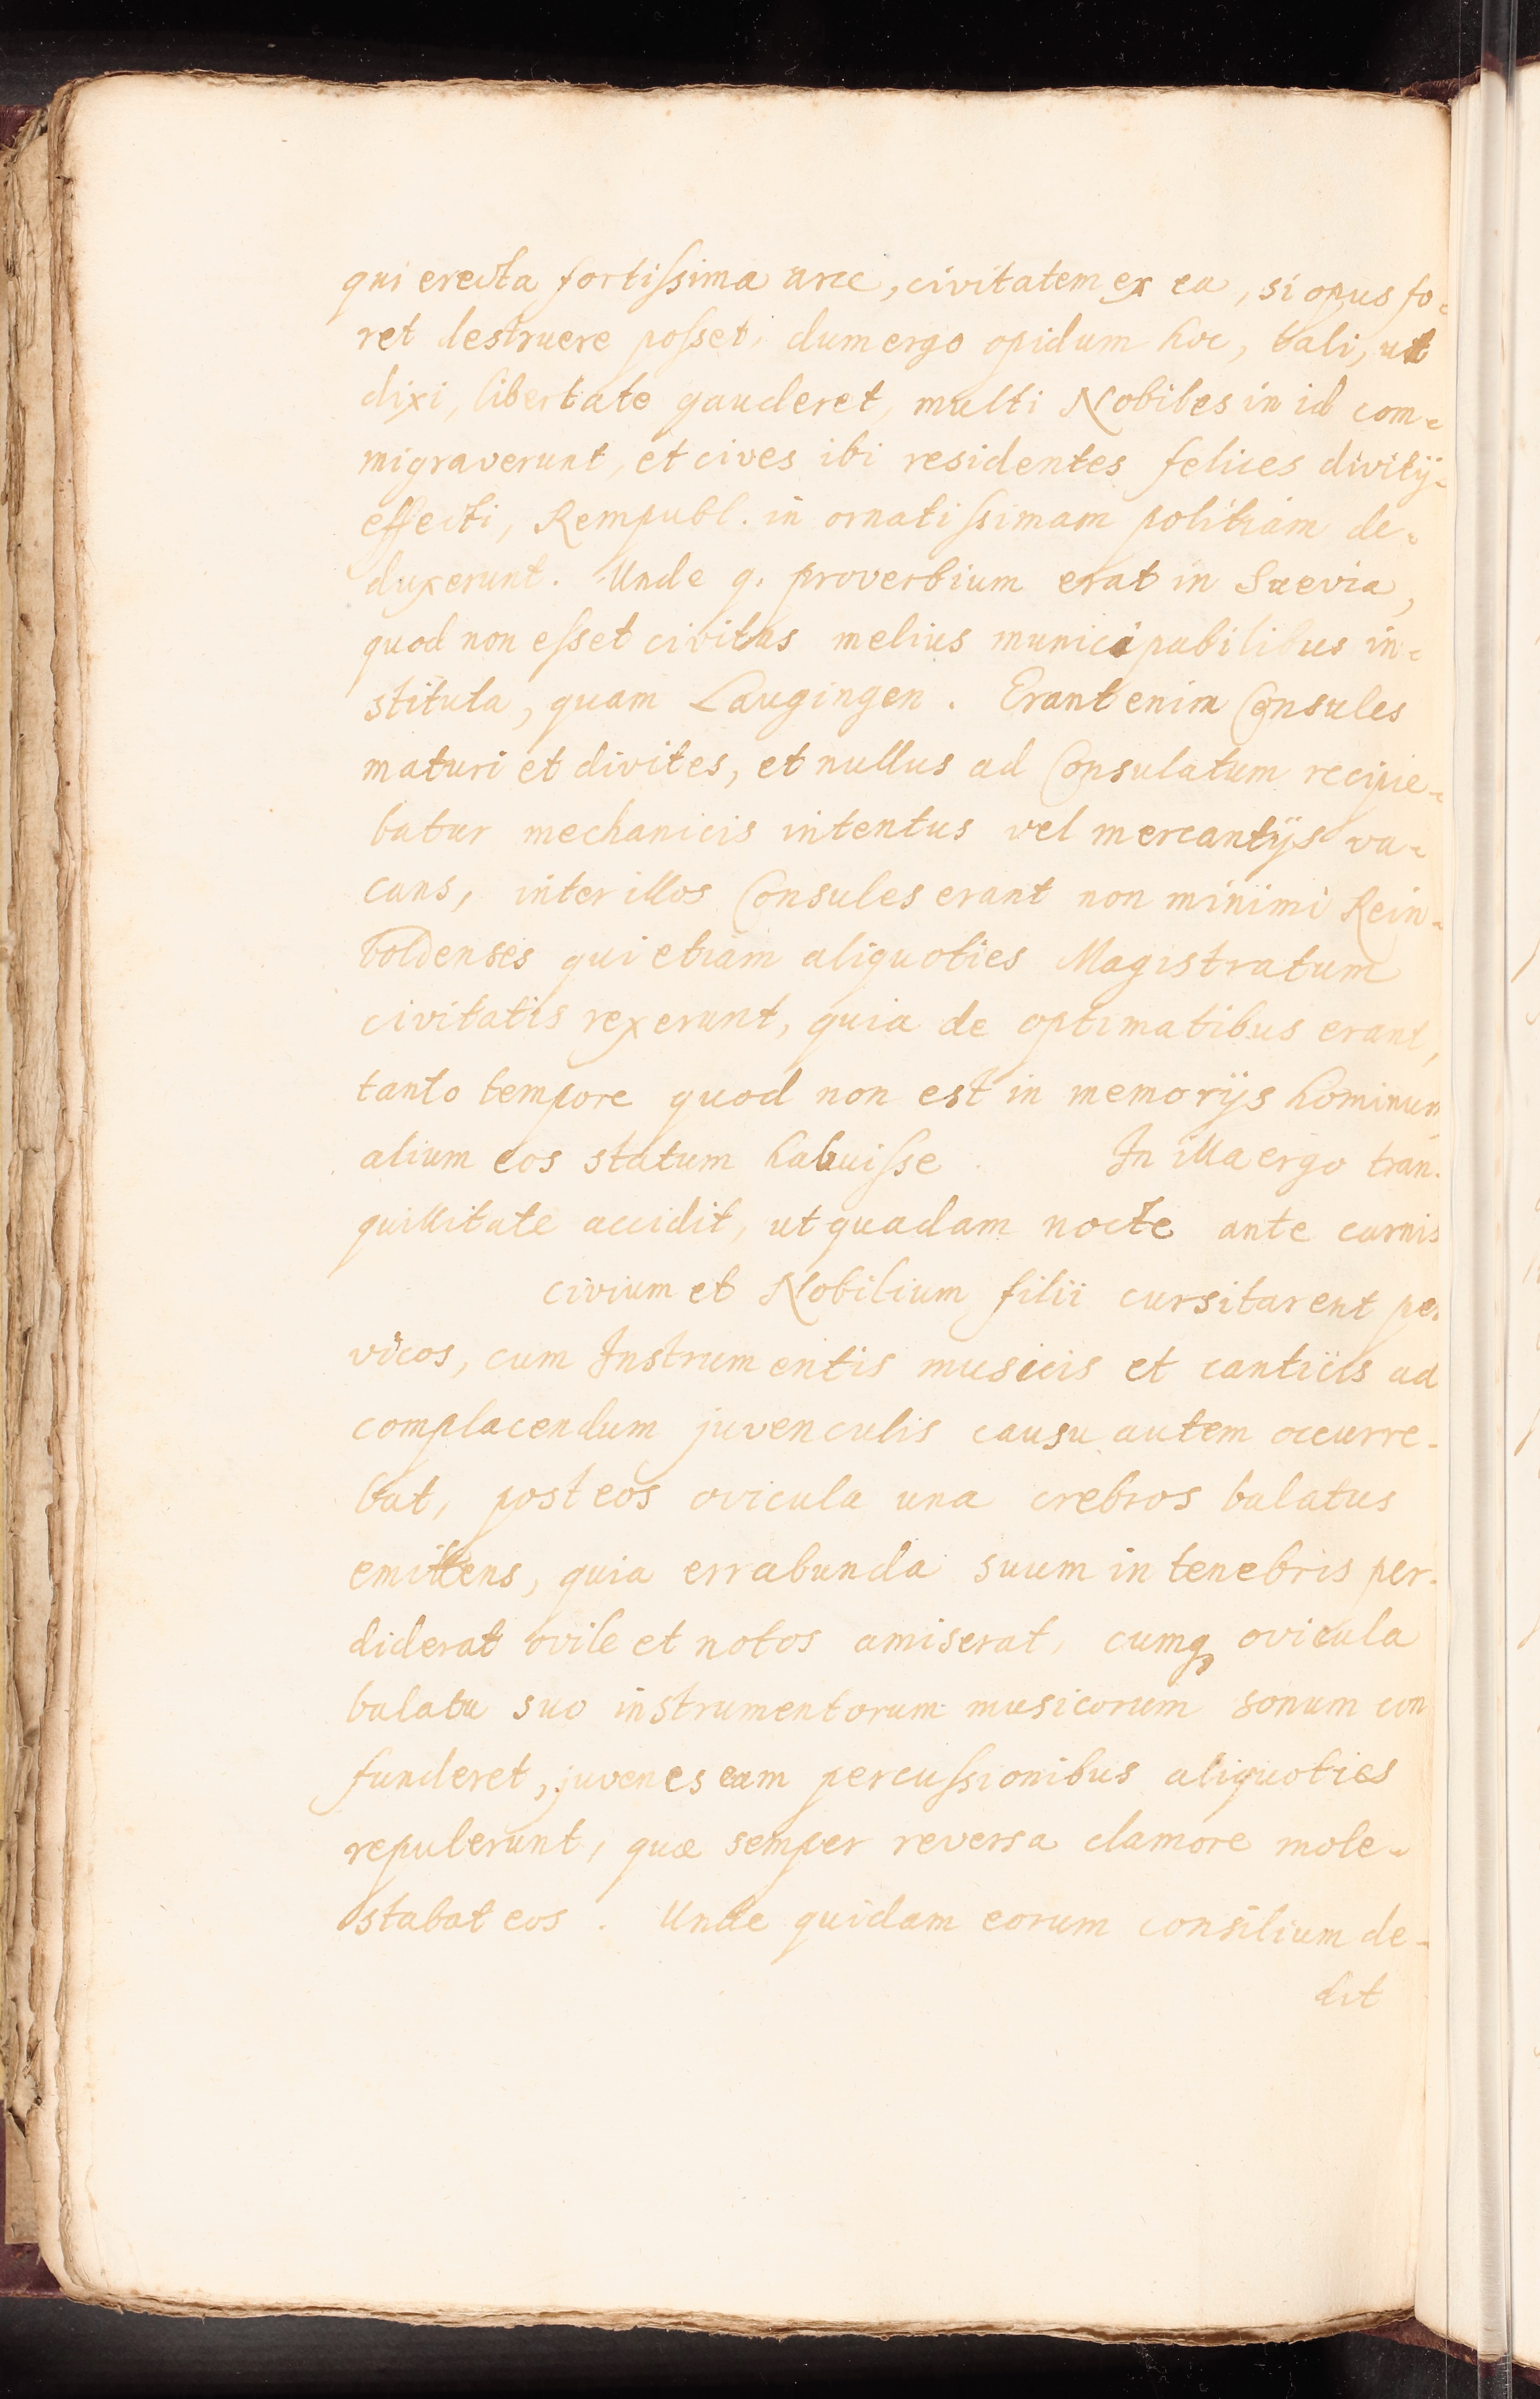 qui erecta fortissima arce, civitatem ex ea, si opus fo-
ret destruere posset, dum ergo opidum hoc, tali, ut
dixi, libertate gauderet, multi Nobiles in id com-
migraverunt, et cives ibi residentes felices divitij-
effecti, Rempubl. in ornatissimam politiam de-
duxerunt. Unde q. proverbium erat in Suevia,
quod non esset civitas melius municipabilibus in-
stituta, quam Laugingen. Erant enim Consules
maturi et divites, et nullus ad Consulatum recipie-
batur mechanicis intentus vel mercantijs va-
cans, inter illos Consules erant non minimi Rein-
boldenses qui etiam aliquoties Magistratum
civitatis rexerunt, quia de optimatibus erant,
tanto tempore quod non est in memorijs hominum
alium eos statum habuisse In illa ergo tran-
quillitate accidit, ut quadam nocte ante carnis
civium et Nobilium filii cursitarent per
vicos, cum Instrumentis musicis et canticis ad
complacendum juvenculis causu autem occurre-
bat, post eos ovicula una crebros balatus
emittens, quia errabunda suum in tenebris per-
diderat ovile et notos amiserat, cumq, ovicula
balatu suo instrumentorum musicorum sonum con
funderet, juvenes eam percussionibus aliquoties
repulerunt, quæ semper reversa clamore mole-
stabat eos. Unde quidam eorum consilium de-
dit